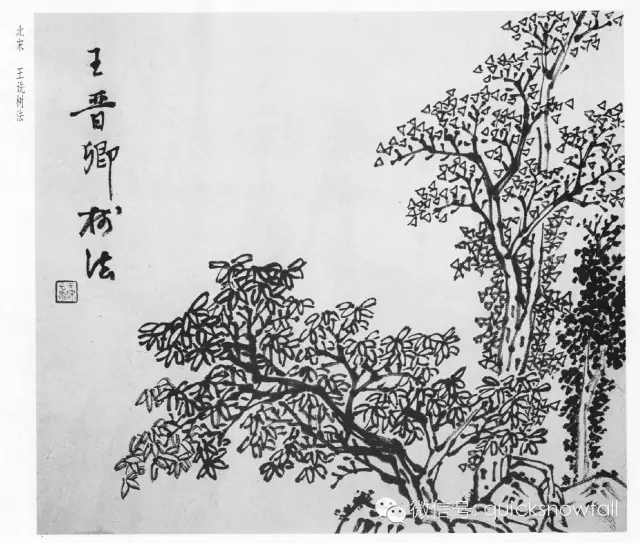 北宋 王诜树法
王晋卿树法
微信号: quicksnowfall